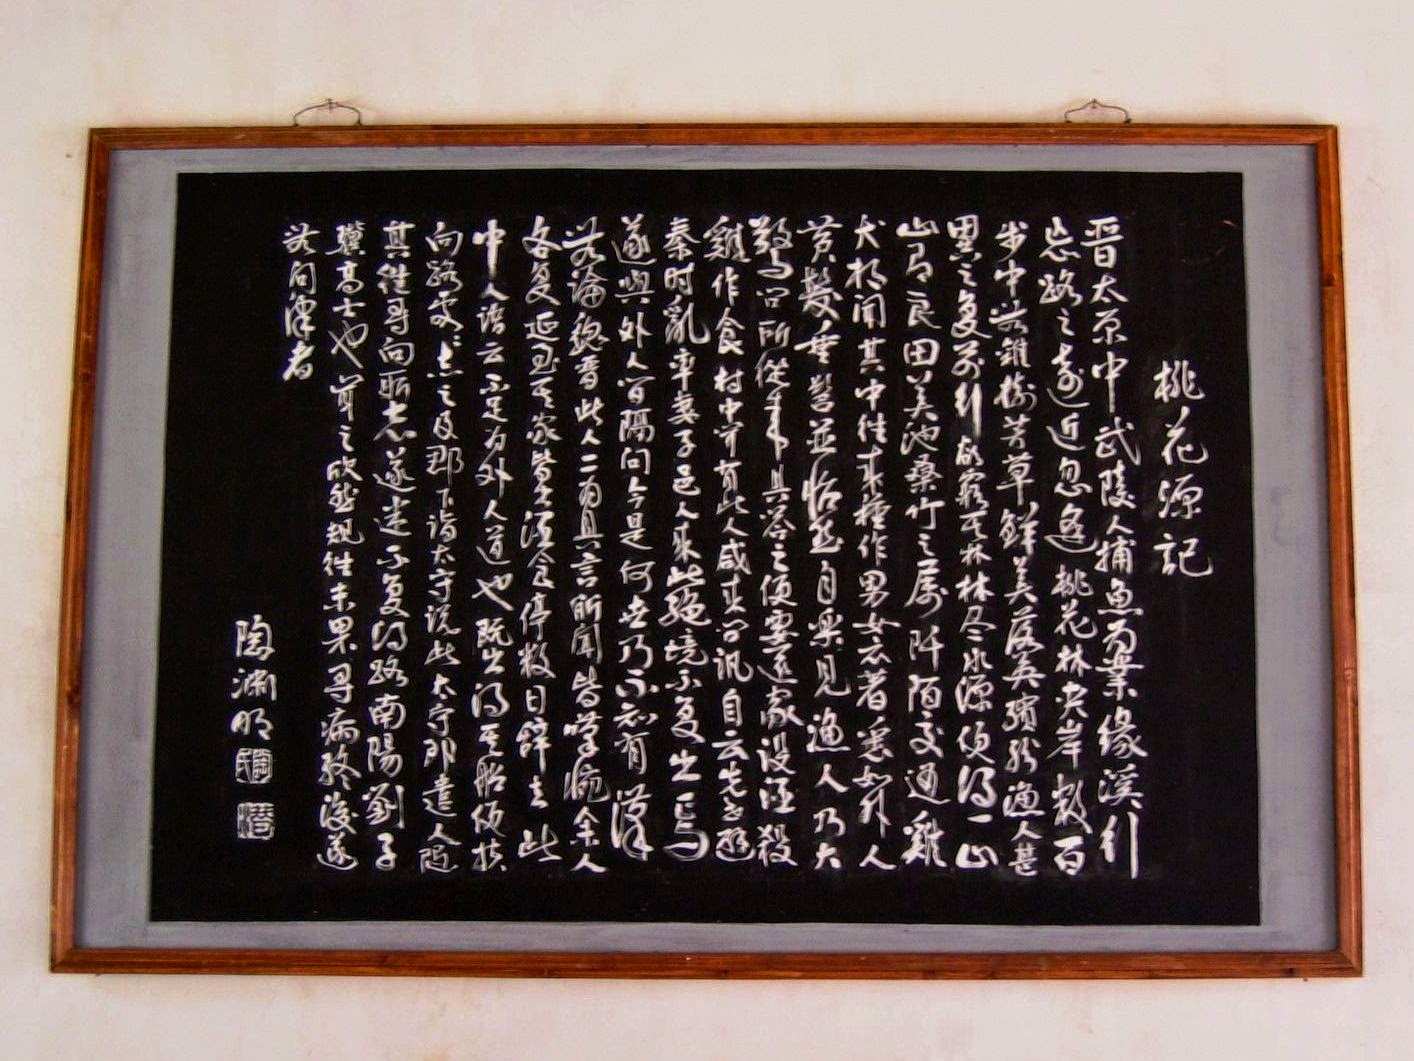 桃花源記
晉太原中武陵人捕魚為業緣溪行
忘路之遠近忽逢桃花林夾岸數百
步中無雜樹芳草鮮美落英繽紛漁人甚
異之复前行欲窮其林林尽水源便得一山
山有良田美池桑竹之屬阡陌交通雞
犬相聞其中往來種作男女衣著悉如外人
黃髮垂髫並怡然自樂見漁人乃大
驚問所從來具答之便要還家設酒殺
雞作食村中聞有此人咸來問訊自云先世避
秦時亂率妻子邑人來此絕境不复出焉
遂與外人間隔問今是何世乃不知有漢
無論魏晉此人一一為具言所聞皆嘆惋余人
各复延至其家皆出酒食停數日辭去此
中人語云不足為外人道也既出得其船便扶
向路處處志之及郡下詣太守說此太守即遣人隨
其往尋向所志遂迷不复得路南陽劉子
驥高士也聞之欣然規往未果尋病終後遂
無問津者
陶淵明
陶氏